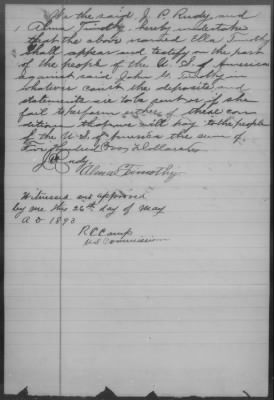 We the said J. P. Rudy and
Alma Timothy hereby undertake
that the above named Ellen Timothy
shall appear and testify on the part
of the people of the U. S. of America
against said John G. Timothy in
whatever court the deposition and
statements are to be sent or if she
fail to perform either of these con
ditions thereof will pay to the people
of the U.S. of America the sum of
Five Hundred Dollars
J P Rudy
Alma Timothy
Witnessed and approved
by me this 26th day of May
A D 1893
R C Camp
U S Commissioner